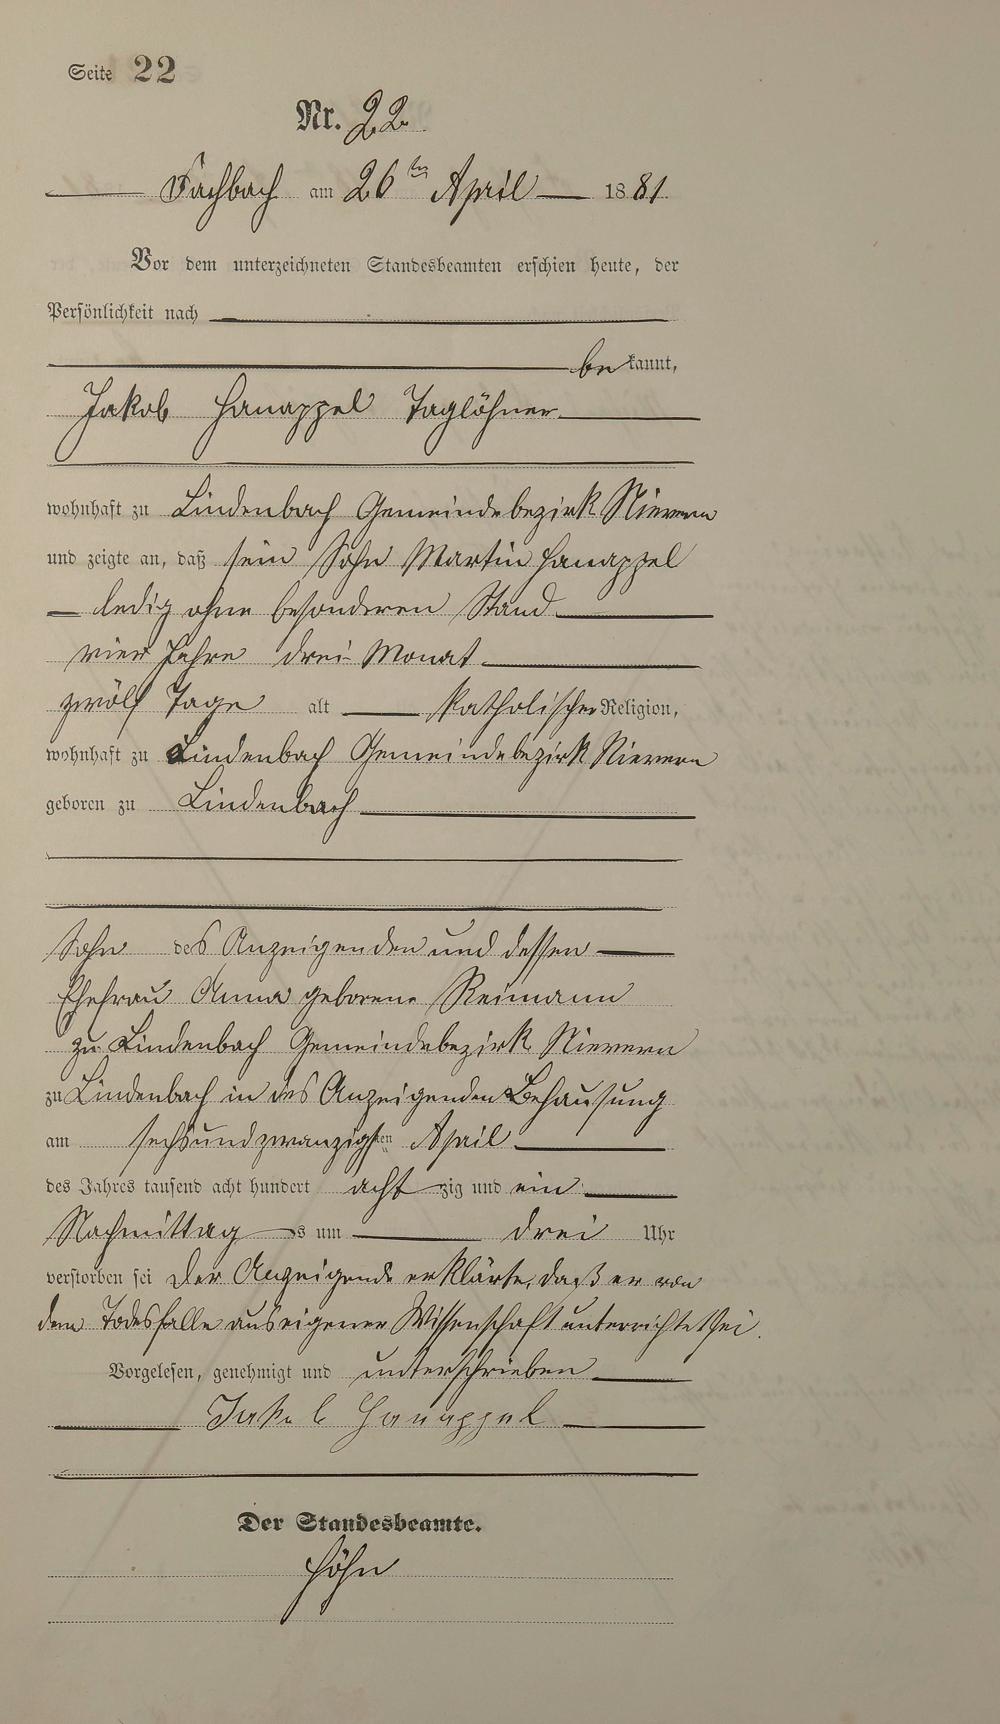 Seite 22
Nr. 22
Fachbach am 26ten April 1881.
Vor dem unterzeichneten Standesbeamten erschien heute, der
Persönlichkeit nach
bekannt,
Jakob Hanappel Taglöhner
wohnhaft zu Lindenbach Gemeindebezirk Nievern
und zeigte an, daß sein Sohn Martin Hanappel
ledig ohne besonderen Stand
vier Jahre drei Monat
zwölf Tage alt katholischer Religion,
wohnhaft zu Lindenbach Gemeindebezirk Nievern
geboren zu Lindenbach
Sohn des Anzeigenden und dessen
Ehefrau Anna geborene Reimann
zu Lindenbach Gemeindebezirk Nievern
zu Lindenbach in des Anzeigenden Behausung
am sechsundzwanzigsten April
des Jahres tausend acht hundert achtzig und ein
Nachmittags um drei Uhr
verstorben sei Der Anzeigende erklärte, daß er von
dem Todesfalle aus eigener Wissenschaft unterrichtet sei.
Vorgelesen, genehmigt und unterschrieben
Jakob Hanappel
Der Standesbeamte.
Höhn